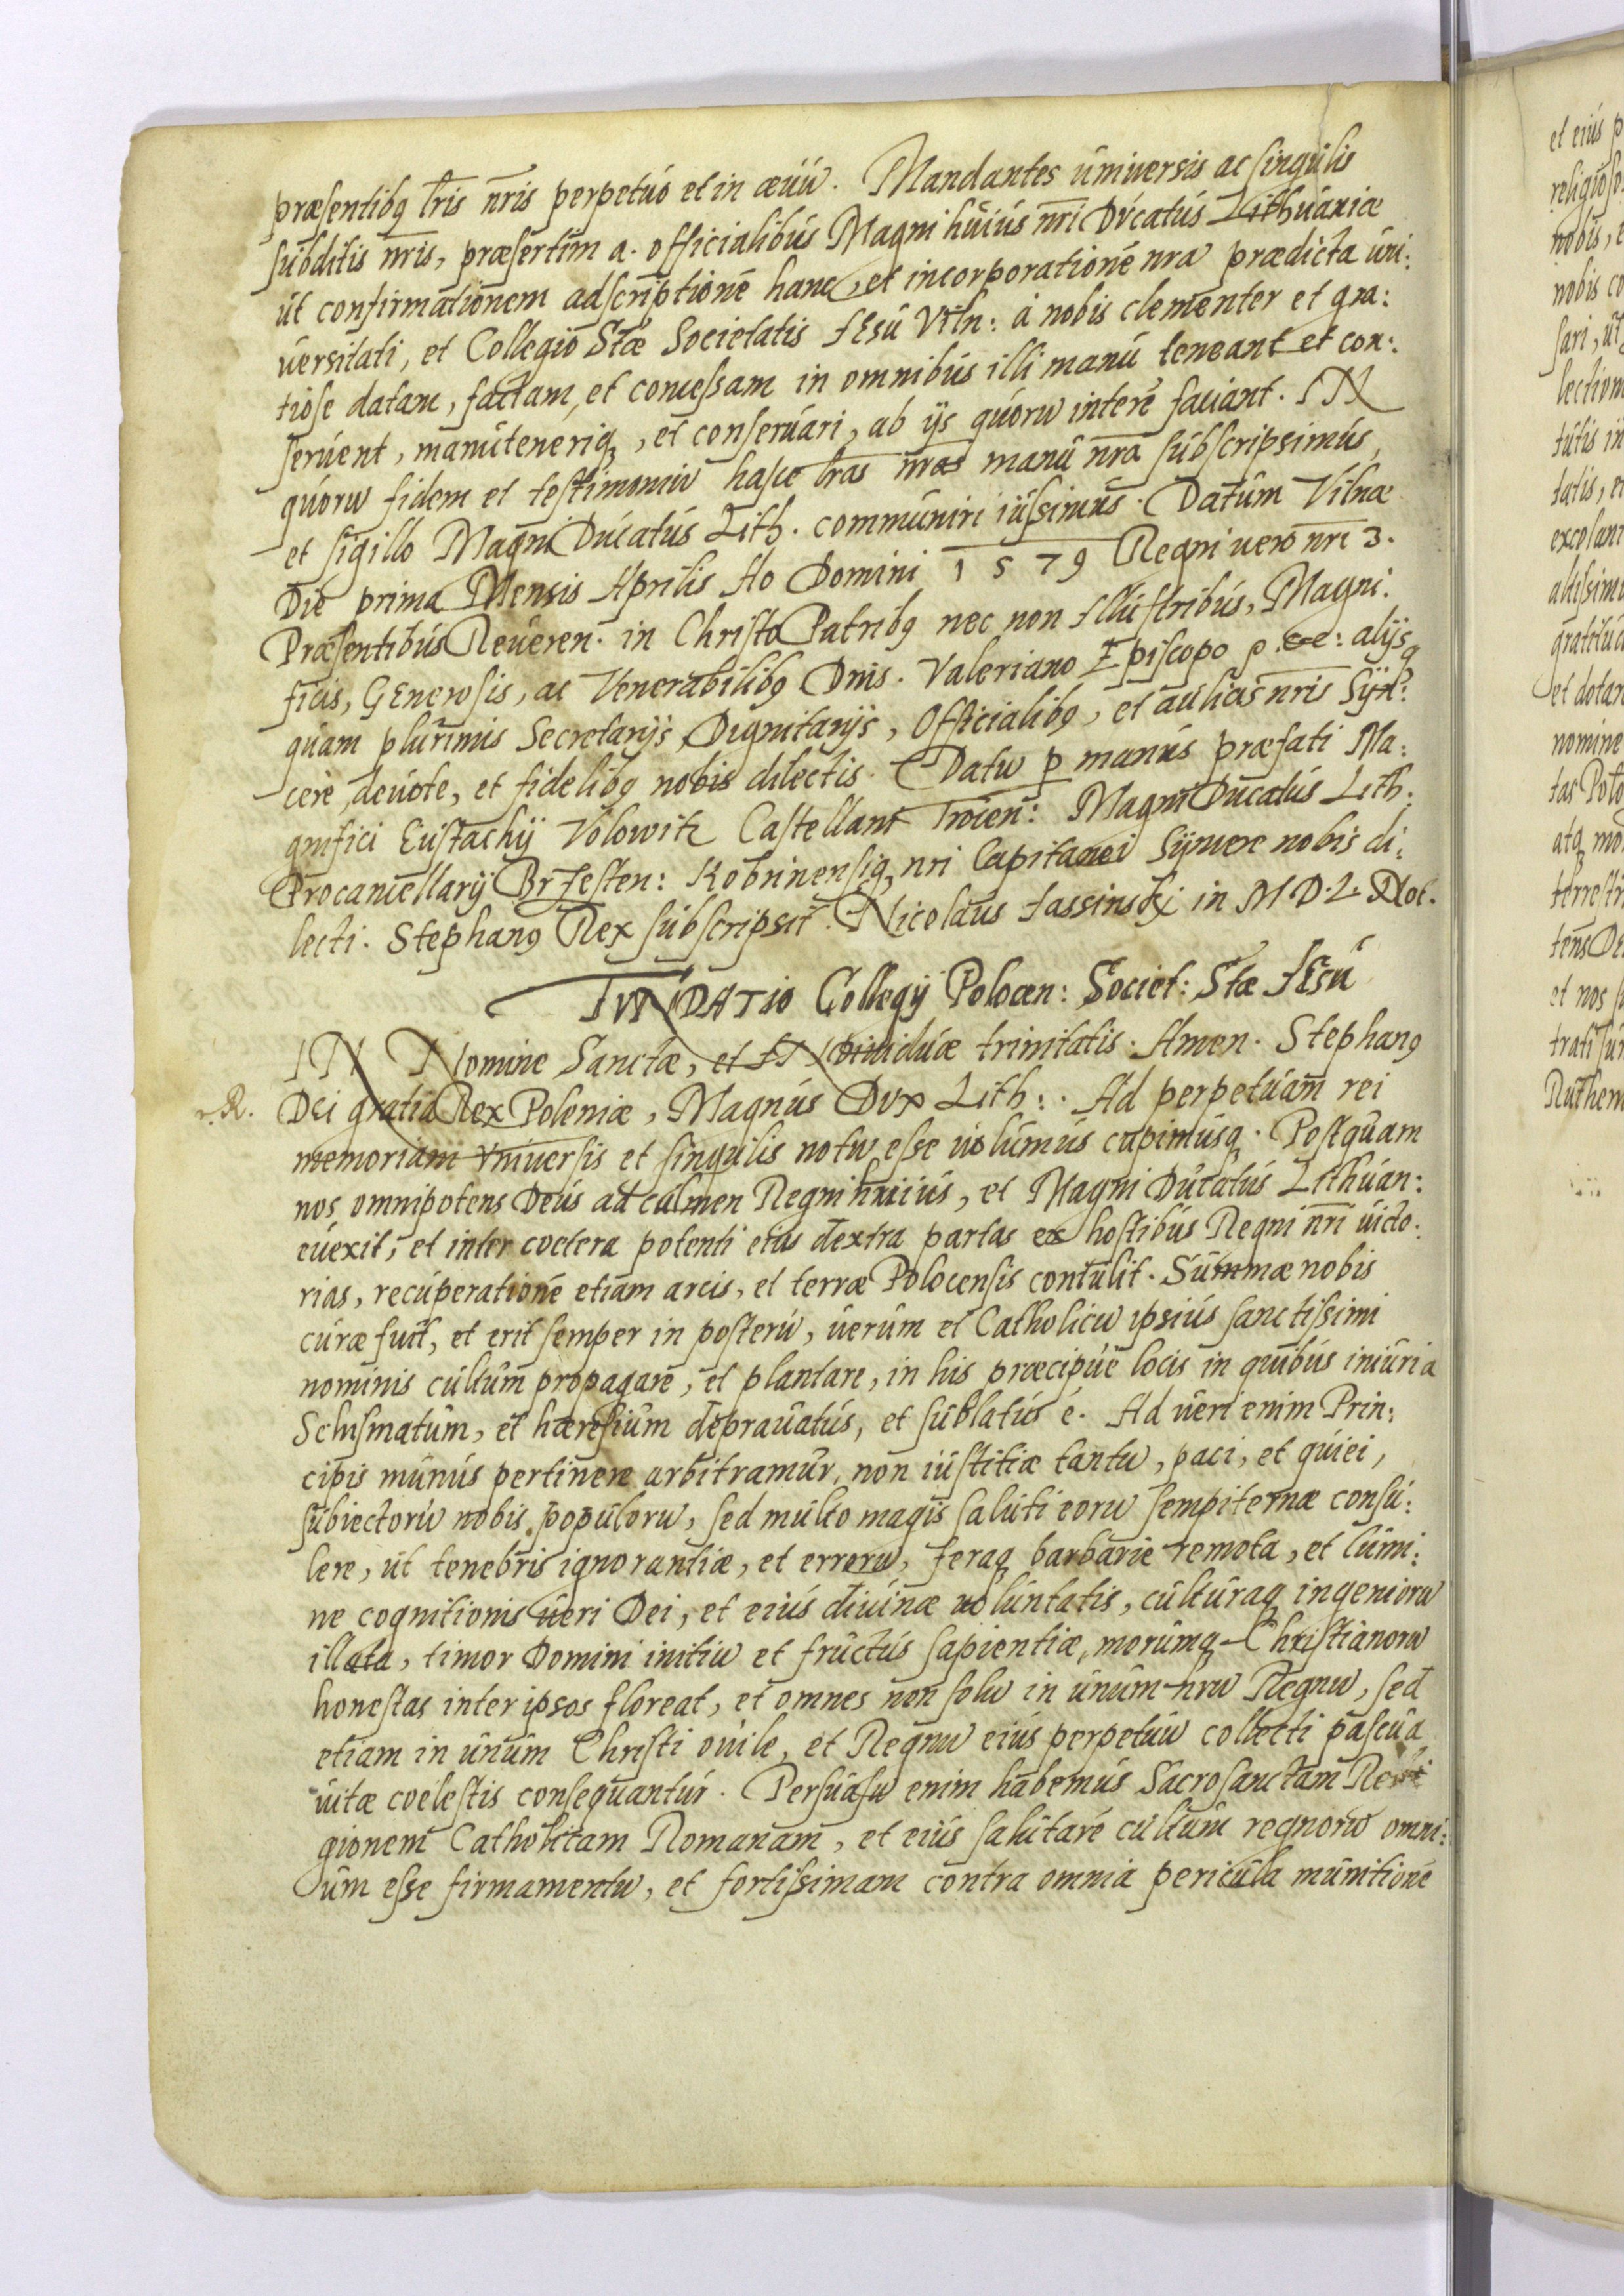 præsentibq lris nris perpetuo et in ævuu. Mandantes universis ac singulis
subditis nris, præsertim a. officialibus Magni huius nri Ducatus Lithuaniæ
ut confirmationem adscriptionē hanc, et incorporationē nra prædicta uni:
versitati, et Collegio Stæ Societatis IEsu Viln: à nobis clementer et gra:
tiose datam, factam, et concessam in omnibus illi manu teneant et con:
servent, manuteneriq, et conservari, ab ijs quoru interē faciant. IN
quoru fidem et testimoniu hasce lras nras manu nra subscripsimus,
et sigillo Magni Ducatus Lith. communiri iussimus. Datum Vilnæ
Die prima Mensis Aprilis Ao Domini 1579 Regni vero nri 3.
Præsentibus Reveren. in Christo Patribq nec non Illustribus, Magni:
ficis, GEnerosis, ac Venerabilibq Dnis. Valeriano Episcopo alijsq
quam plurimis Secretarijs, Dignitarijs, Officialibq, et aulicis nris Syn:
cere devote, et fidelibq nobis dilectis. Datu p manus præfati Ma:
gnifici Eustachij Volowitz Castellani Trocen: Magni Ducatus Lith:
Procancellarij Brzesten: Kobrinensiq, nri Capitanei Syncere nobis di:
lecti. Stephanq Rex subscripsit. Nicolaus Iassinski in M.D.L. Not.
FUNDATIO Collegij Polocen: Societ: Stæ IEsu
IN Nomine Sanctæ, et INdividuæ trinitatis. Amen. Stephanq
R. DEi gratia Rex Poloniæ, Magnus Dux Lith:. Ad perpetuam rei
memoriam Vniversis et singulis notu esse volumus cupimusq. Postquam
nos omnipotens Deus ad culmen Regni huius, et Magni Ducatus Lithuan:
evexit, et inter coetera potenti eius dextra partas ex hostibus Regni nri victo:
rias, recuperationē etiam arcis, et terræ Polocensis contulit. Summæ nobis
curæ fuit, et erit semper in posteru, verum et Catholicu ipsius sanctissimi
nominis cultum propagare, et plantare, in his præcipuè locis in quibus iniuria
Schismatum, et hæresium depravatus, et sublatus ē. Ad veri enim Prin:
cipis munus pertinere arbitramur, non iustitiæ tantu, paci, et quiei,
subiectoru nobis populoru, sed multo magis saluti eoru sempiternæ consu:
lere, ut tenebris ignorantiæ, et erroru, feraq barbarie remota, et lumi:
ne cognitionis veri Dei, et eius divinæ voluntatis, culturaq ingenioru
illata, timor Domini initiu et fructus sapientiæ, morumq Christianoru
honestas inter ipsos floreat, et omnes non solu in unum nru Regnu, sed
etiam in unum Christi ovile, et Regnu eius perpetuu collecti pascua
vitæ coelestis consequantur. Persuasu enim habemus Sacrosanctam Reli
gionem Catholicam Romanam, et eius salutarē cultum regnoru omni:
um esse firmamentu, et fortissimam contra omnia pericula munitionē
et eius
religios
nobis,
nobis co
sari, ut
lection
tutis in
tatis, e
excolan
altissim
gratitud
et dotan
nomine
tas Polo
atq mo
terrestri
tens De
et nos
trati su
Ruthen